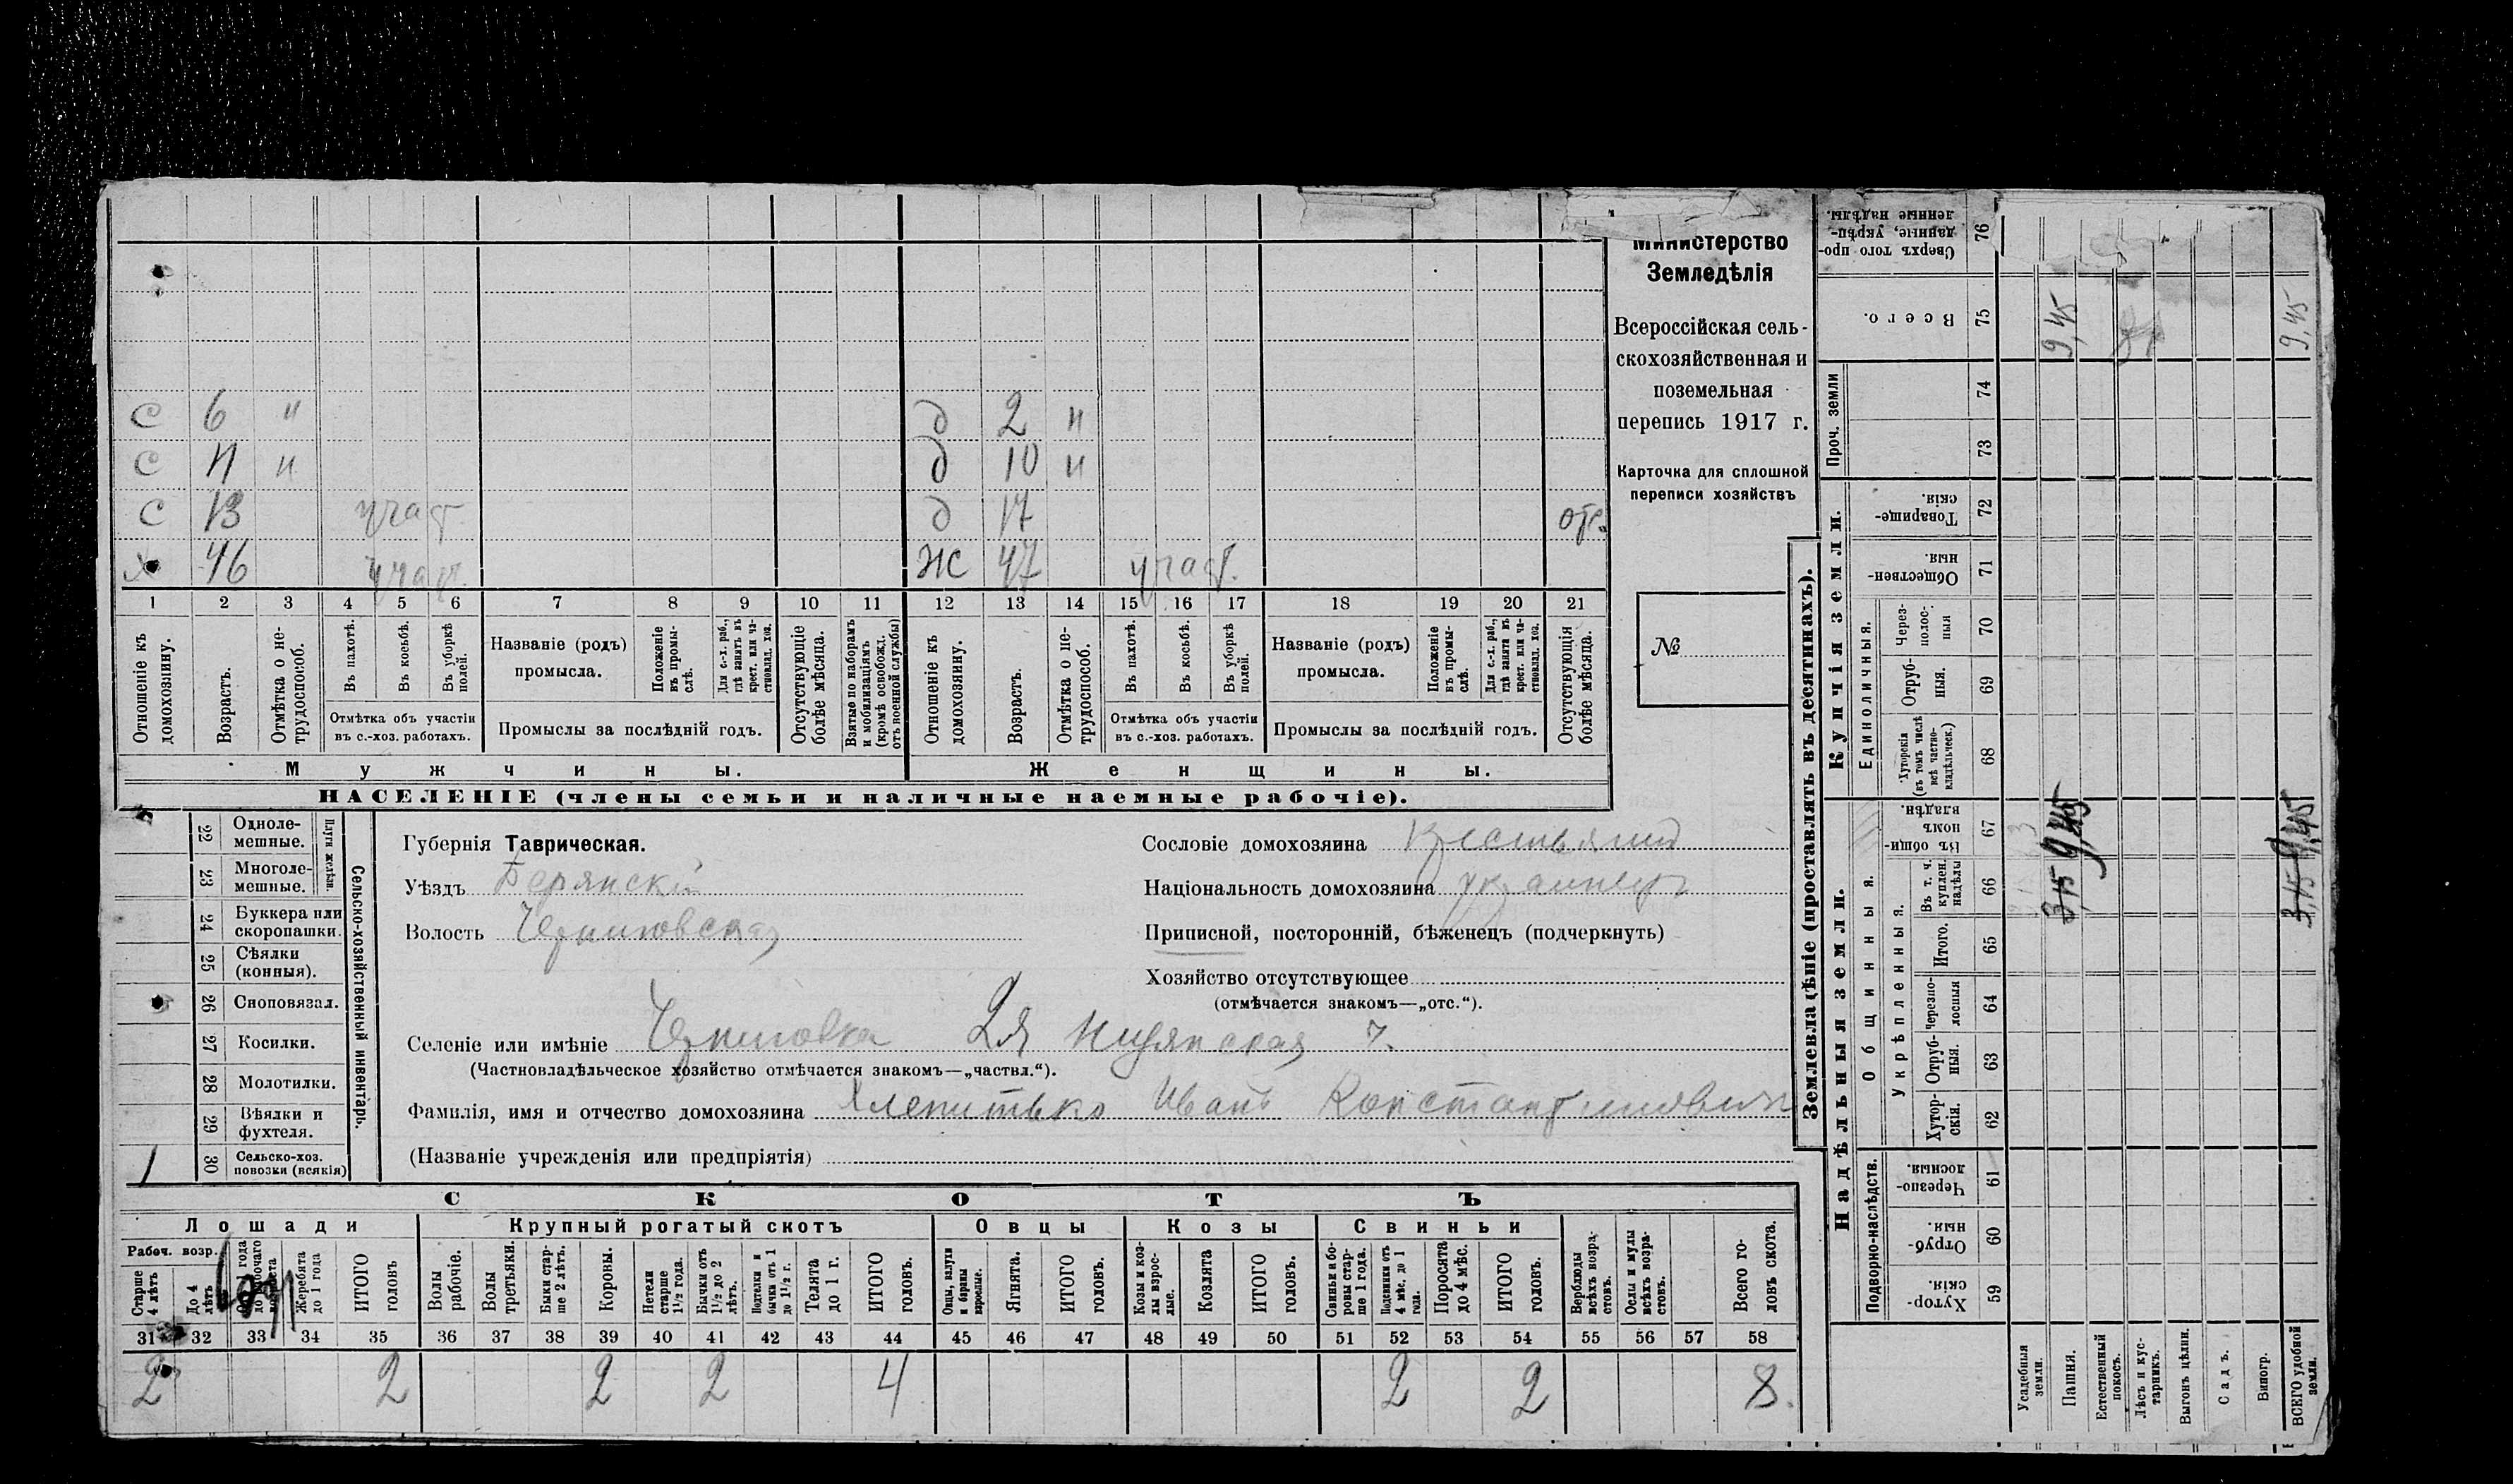 С 6 "   д 2 и
С 11 и   д 10 и
С 13 участ.   д 17 отс.
х 46 участ.   ж 47 участ.
1 2 3 4 5 6 7 8 9 10 11 12 13 14 15 16 17 18 19 20 21
Отношеніе къ домохозяину.
Возрастъ.
Отмѣтка о нетрудоспособ.
Въ пахотѣ.
Въ косьбѣ.
Въ уборкѣ полей.
Отмѣтка объ участіи
въ с.-хоз. работахъ.
Названіе (родъ)
промысла.
Положеніе въ промыслѣ.
Для с.-х. раб., гдѣ занятъ въ крест. или частновлад. хоз.
Промыслы за послѣдній годъ.
Отсутствующіе болѣе мѣсяца.
Взятые по наборамъ и мобилизаціямъ (кромѣ освобожд. отъ военной службы)
Отношеніе къ домохозяину.
Возрастъ.
Отмѣтка о нетрудоспособ.
Въ пахотѣ.
Въ косьбѣ.
Въ уборкѣ полей.
Отмѣтка объ участіи
въ с.-хоз. работахъ.
Названіе (родъ)
промысла.
Положеніе въ промыслѣ.
Для с.-х. раб., гдѣ занята въ крест. или частновлад. хоз.
Промыслы за послѣдній годъ.
Отсутствующія болѣе мѣсяца.
Мужчины.   Женщины.
НАСЕЛЕНІЕ (члены семьи и наличные наемные рабочіе).
Министерство
Земледѣлія
Всероссійская сель-
скохозяйственная и
поземельная
перепись 1917 г.
Карточка для сплошной
переписи хозяйствъ
№
22 Одноле-
мешные.
23 Многоле-
мешные.
Плуги желѣзн.
24 Буккера или
скоропашки.
25 Сѣялки
(конныя).
26 Сноповязал.
27 Косилки.
28 Молотилки.
29 Вѣялки и
фухтеля.
1 30 Сельско-хоз.
повозки (всякія)
Сельско-хозяйственный инвентарь.
Губернія Таврическая.
Уѣздъ Бердянскій
Волость Черниговская
Сословіе домохозяина крестьянин
Національность домохозяина украинецъ
Приписной, посторонній, бѣженецъ (подчеркнуть)
Хозяйство отсутствующее
(отмѣчается знакомъ—„отс.“).
Селеніе или имѣніе Черниговка 2я
(Частновладѣльческое хозяйство отмѣчается знакомъ—„частвл.“).
Фамилія, имя и отчество домохозяина Хлепитько Иванъ Константинович
(Названіе учрежденія или предпріятія)
СКОТЪ
Лошади   Крупный рогатый скотъ   Овцы   Козы   Свиньи
Рабоч. возр.
Старше 4 лѣтъ
До 4 лѣтъ
Жеребята до 1 года
ИТОГО головъ
Волы рабочіе.
Волы третьяки.
Быки старше 2 лѣтъ.
Коровы.
Нетели старше 1½ года.
Бычки отъ 1½ до 2 лѣтъ.
Подтелки и бычки отъ 1 до 1½ г.
Телята до 1 г.
ИТОГО головъ.
Овцы, валухи и бараны взрослые.
Ягнята.
ИТОГО головъ.
Козы и козлы взрослые.
Козлята
ИТОГО головъ.
Свиньи и боровы старше 1 года.
Подсвинки отъ 4 мѣс. до 1 года.
Поросята до 4 мѣс.
ИТОГО головъ.
Верблюды всѣхъ возрастовъ.
Ослы и мулы всѣхъ возрастовъ.
Всего головъ скота.
31 32 33 34 35 36 37 38 39 40 41 42 43 44 45 46 47 48 49 50 51 52 53 54 55 56 57 58
2 2 2 2 4 2 2 8
Землевладѣніе (проставлять въ десятинахъ).
Надѣльныя земли.   Купчія земли.
Подворно-наслѣдств.
Общинныя.
Укрѣпленныя.
Единоличныя.
Проч. земли
59 Хуторскія.
60 Отрубныя.
61 Черезполосныя.
62 Хуторскія.
63 Отрубныя.
64 Черезполосныя
65 Итого.
66 Въ т. ч. куплен. надѣлы
67 Въ общинномъ владѣн.
68 Хуторскія (въ томъ числѣ всѣ частновладѣльческ.)
69 Отрубныя.
70 Черезполосныя
71 Общественныя.
72 Товарищескія.
73
74
75 Всего.
76 Сверхъ того проданные, укрѣпленные надѣлы.
Усадебныя земли.
Пашня. 3,15 9,45 9,45
Естественный покосъ.
Лѣсъ и кустарникъ.
Выгонъ цѣлин.
Садъ.
Виногр.
ВСЕГО удобной земли. 3,15 9,45 9,45